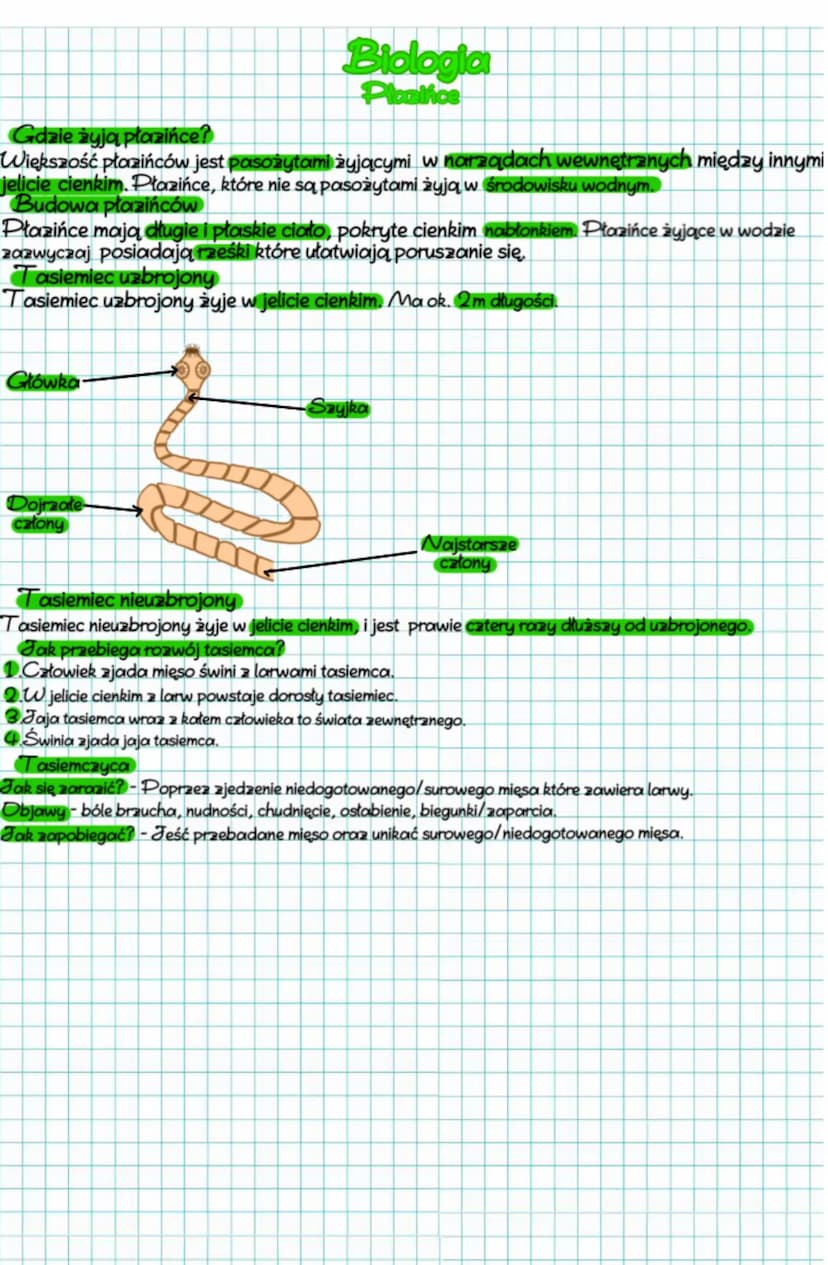 Biologia
Płazińce
Gdzie żyją płazińce?
Większość płazińców jest pasożytami żyjącymi w narządach wewnętrznych między innymi
jelicie cienkim. Płazińce, które nie są pasożytami żyją w środowisku wodnym.
Budowa płazińców
Płazińce mają długie i płaskie ciało, pokryte cienkim nabłonkiem. Płazińce żyjące w wodzie
zazwyczaj posiadają rzęski które ułatwiają poruszanie się.
Tasiemiec uzbrojony
Tasiemiec uzbrojony żyje w jelicie cienkim. Ma ok. 2m długości.
Główka
Szyjka
Dojrzałe
człony
Najstarsze
człony
Tasiemiec nieuzbrojony
Tasiemiec nieuzbrojony żyje w jelicie cienkim, i jest prawie cztery razy dłuższy od uzbrojonego.
Jak przebiega rozwój tasiemca?
1.Człowiek zjada mięso świni z larwami tasiemca.
2.W jelicie cienkim z larw powstaje dorosły tasiemiec.
3.Jaja tasiemca wraz z kałem człowieka to świata zewnętrznego.
4.Świnia zjada jaja tasiemca.
Tasiemczyca
Jak się zarazić? - Poprzez zjedzenie niedogotowanego/surowego mięsa które zawiera larwy.
Objawy - bóle brzucha, nudności, chudnięcie, osłabienie, biegunki/zaparcia.
Jak zapobiegać? - Jeść przebadane mięso oraz unikać surowego/niedogotowanego mięsa.